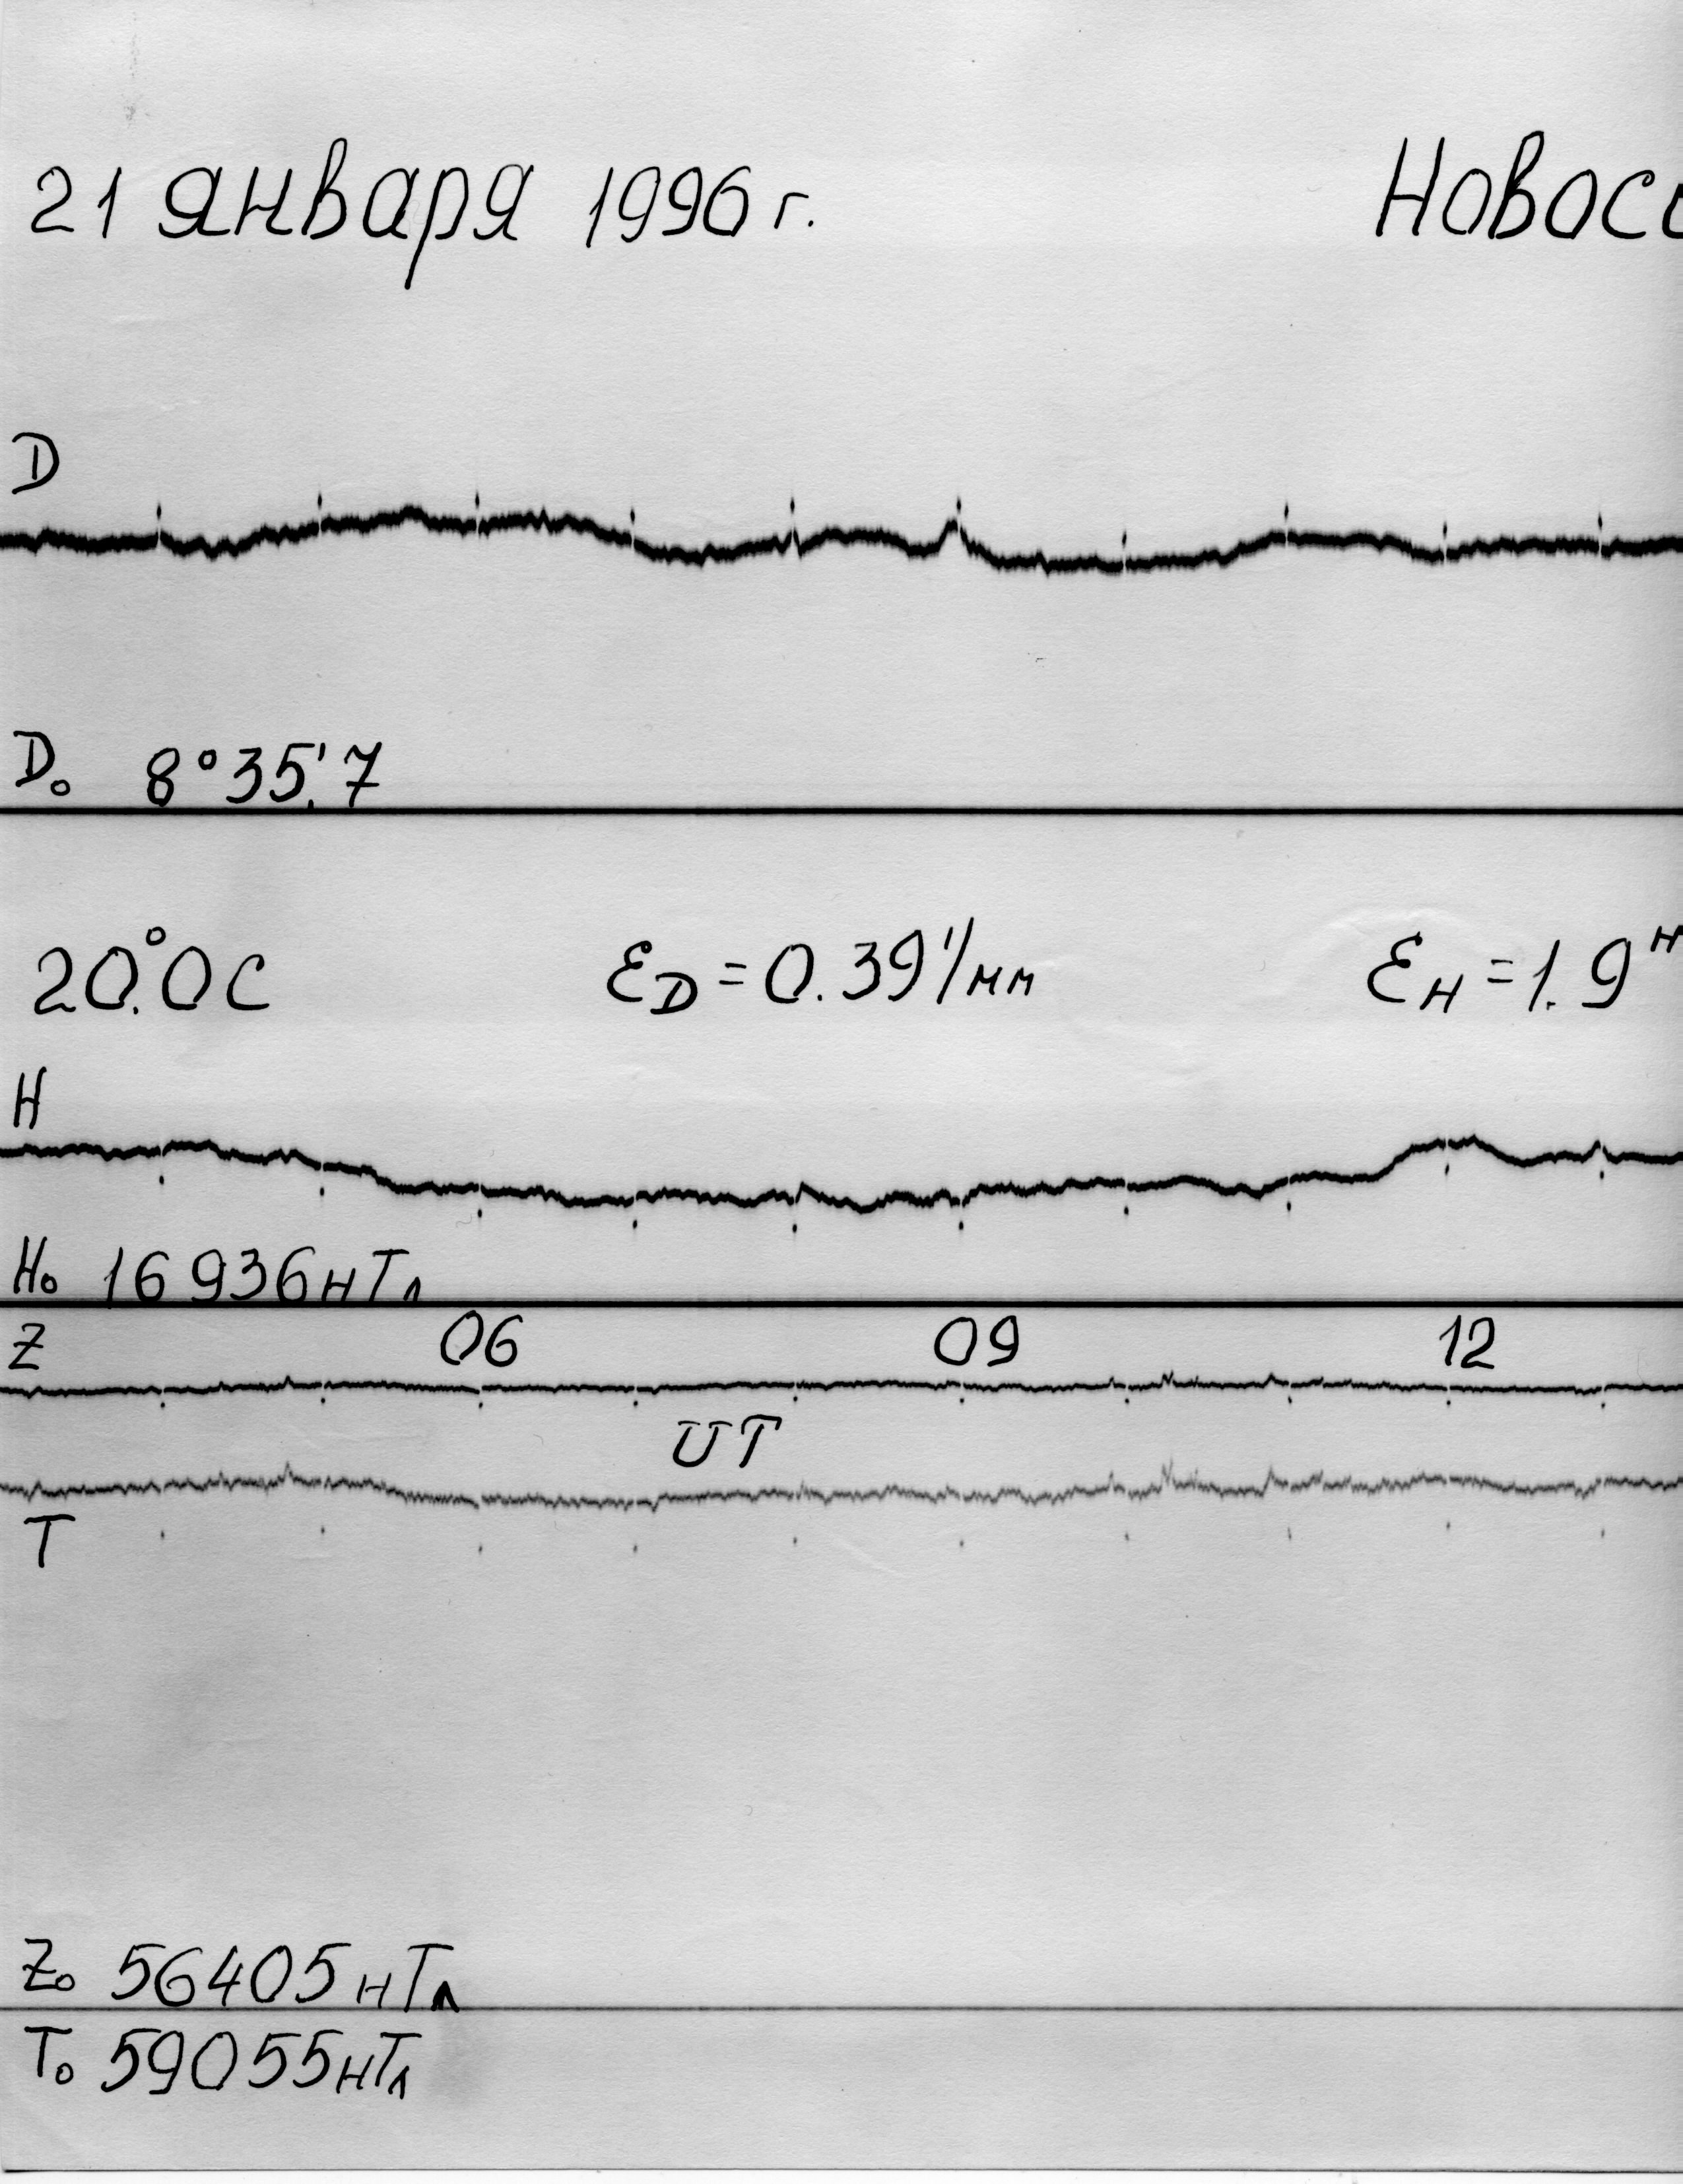 21 января 1996 г. Новос
D
D₀ 8°35′.7
20°.0 C ε_D = 0.39′/мм ε_H = 1.9 н
H
H₀ 16936 нТл
Z 06 09 12
UT
T
Z₀ 56405 нТл
T₀ 59055 нТл